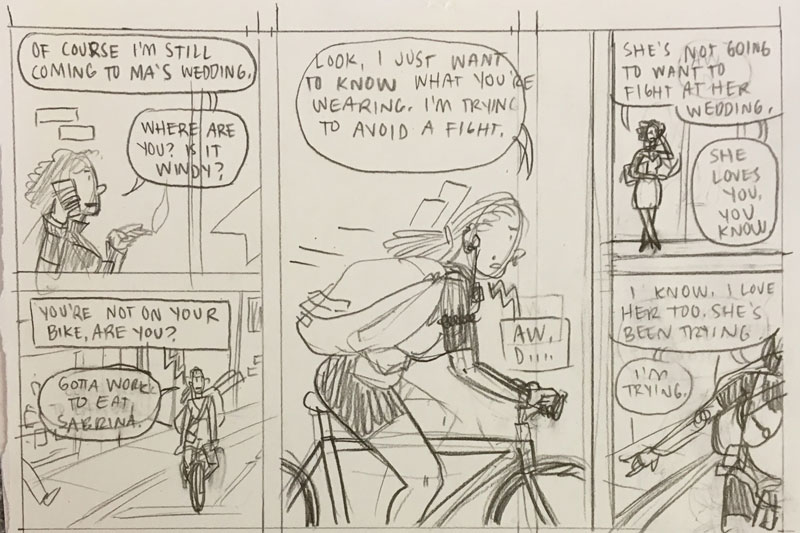 OF COURSE I'M STILL
COMING TO MA'S WEDDING.
WHERE ARE
YOU? IS IT
WINDY?
YOU'RE NOT ON YOUR
BIKE, ARE YOU?
GOTTA WORK
TO EAT
SABRINA.
LOOK, I JUST WANT
TO KNOW WHAT YOU'RE
WEARING. I'M TRYING
TO AVOID A FIGHT.
AW,
D....
SHE'S NOT GOING
TO WANT TO
FIGHT AT HER
WEDDING.
SHE
LOVES
YOU,
YOU
KNOW
I KNOW. I LOVE
HER TOO. SHE'S
BEEN TRYING
I'M
TRYING.